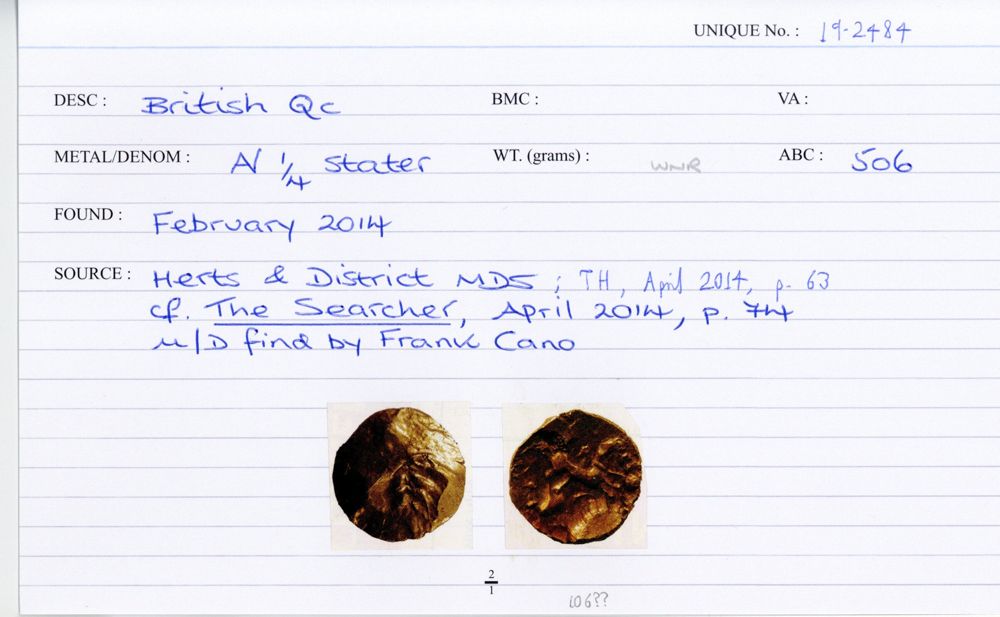 UNIQUE No. : 19-2484
DESC : British Qc BMC : VA :
METAL/DENOM : A/ 1/4 stater WT. (grams) : WNR ABC : 506
FOUND : February 2014
SOURCE : Herts & District MDS ; TH, April 2014, p. 63
cf. The Searcher, April 2014, p. 74
M/D find by Frank Cano
2/1
106??